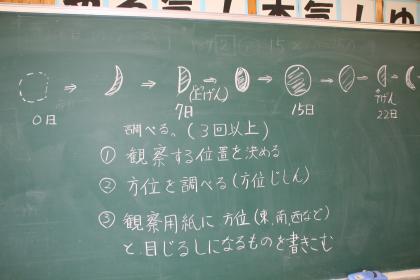 0日 7日 15日 22日
(上げん) 下げん
調べる。(3回以上)
① 観察する位置を決める
② 方位を調べる(方位じしん)
③ 観察用紙に 方位(東,南,西など)
と 目じるしになるものを書きこむ